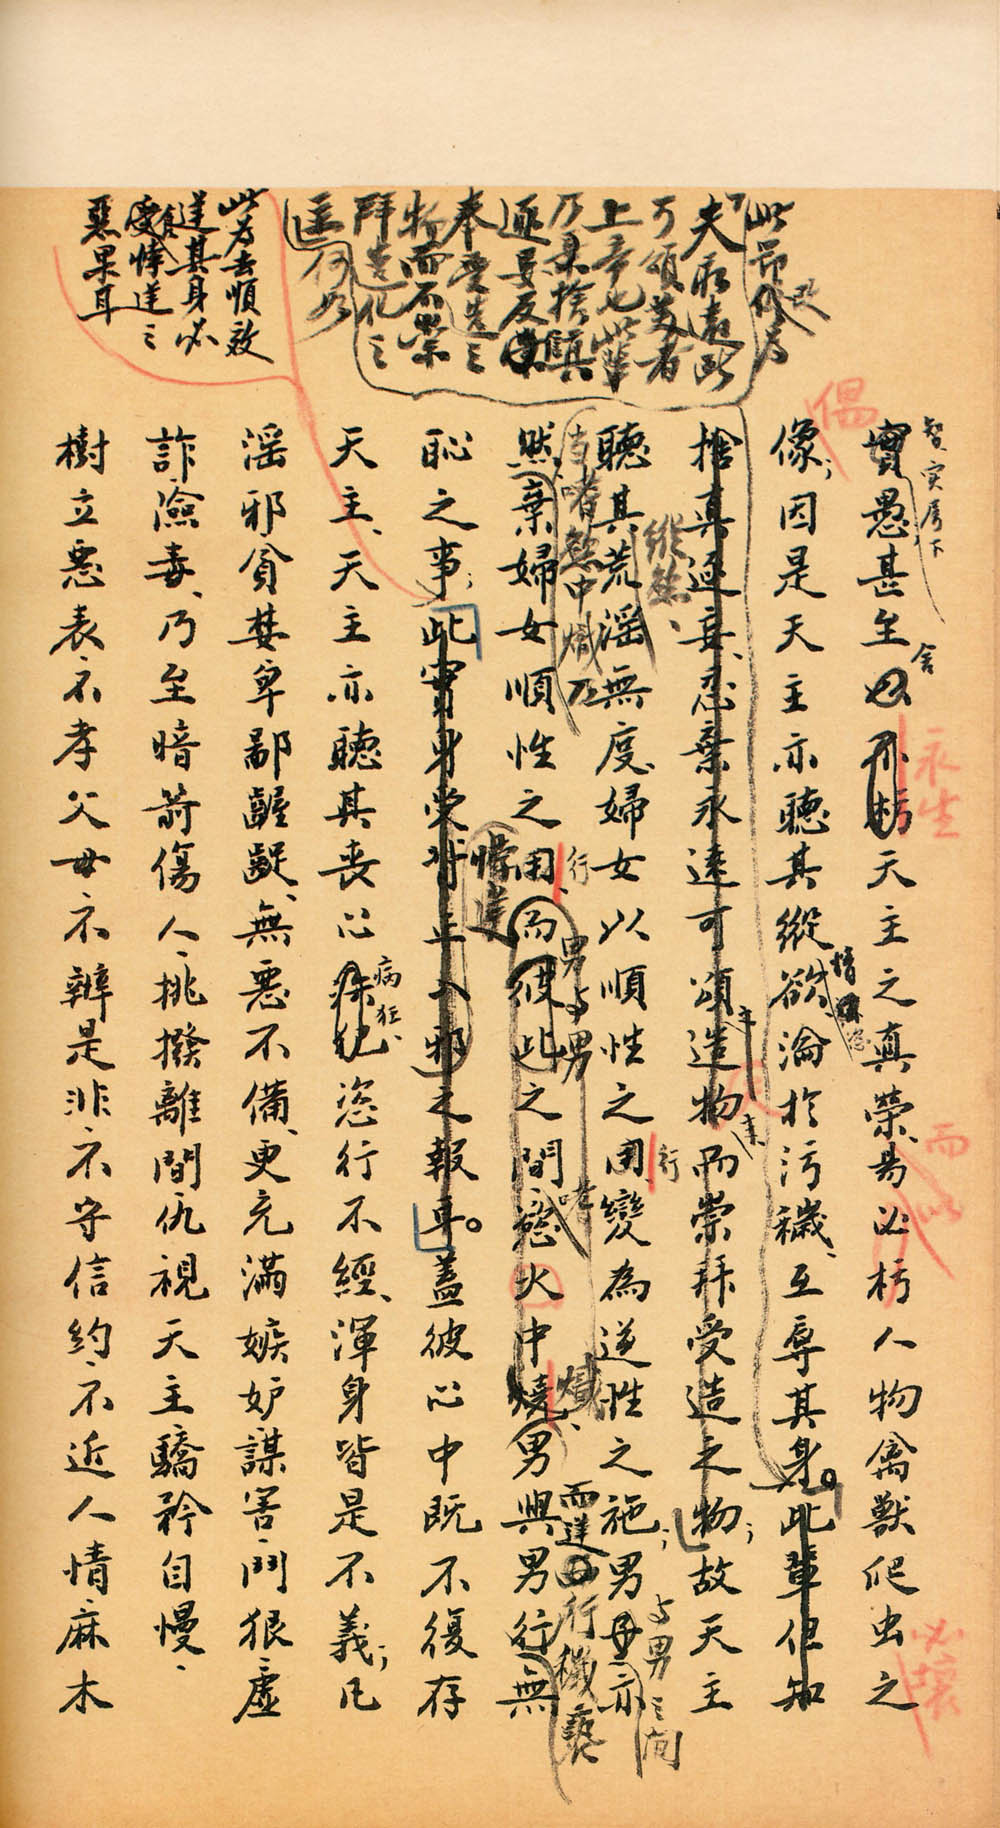 此節似為
夫永遠所
可頌美者
上帝也此輩
乃棄捨眞
逐妄反
奉受造之
物而不崇
拜造化之
主何如
此為去順效
逆其身必
食
受悖逆之
惡果耳
偶
智實居下
實愚甚至
舍
天主之真榮、易以朽人物禽獸爬虫之
永生
而以
必壞
像；因是天主亦聽其縱欲、淪於污穢、互辱其身。此輩但知
情
捨真逐妄、忍棄永遠可頌造物而崇拜受造之物；故天主
主
来
縱慾、
聽其荒淫無度、婦女以順性之用、變為逆性之施；男亦
行
與男之間
嗜慾中熾乃
然、棄婦女順性之用而彼此之間、慾火中燒、男與男行無
行、
男與男
嗜
熾、
而逆行穢褻
恥之事；此實身受背正入邪之報耳。蓋彼心中既不復存
悖逆
天主、天主亦聽其喪心恣行不經、渾身皆是不義；凡
病狂、
淫邪貪婪卑鄙齷齪、無惡不備、更充滿嫉妒謀害、鬥狠、虛
詐、澰毒、乃至暗箭傷人、挑撥離間、仇視天主、驕矜自慢、
樹立惡表、不孝父母、不辨是非、不守信約、不近人情、麻木